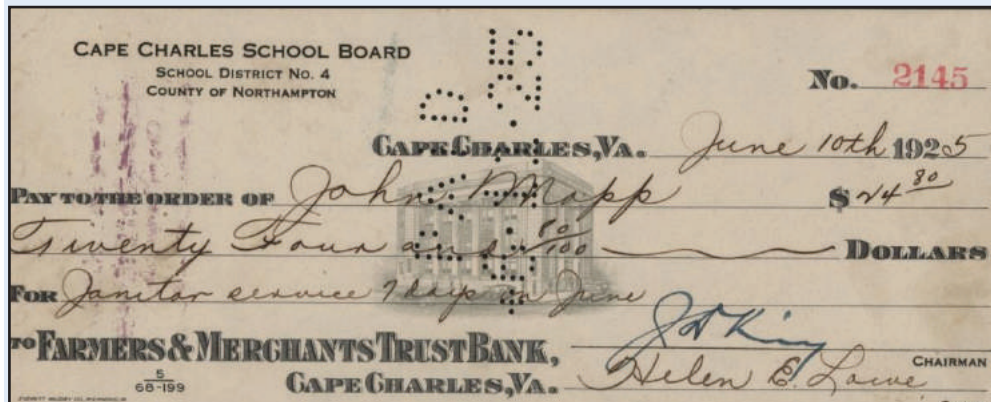 CAPE CHARLES SCHOOL BOARD
SCHOOL DISTRICT No. 4
COUNTY OF NORTHAMPTON
No. 2145
CAPE CHARLES, VA. June 10th 1925
PAY TO THE ORDER OF John Mapp $ 24 80
Twenty Four and 80/100 DOLLARS
FOR Janitor service 7 days in June
TO FARMERS & MERCHANTS TRUST BANK,
CHAIRMAN
5
68-199
CAPE CHARLES, VA. Helen E. Lowe